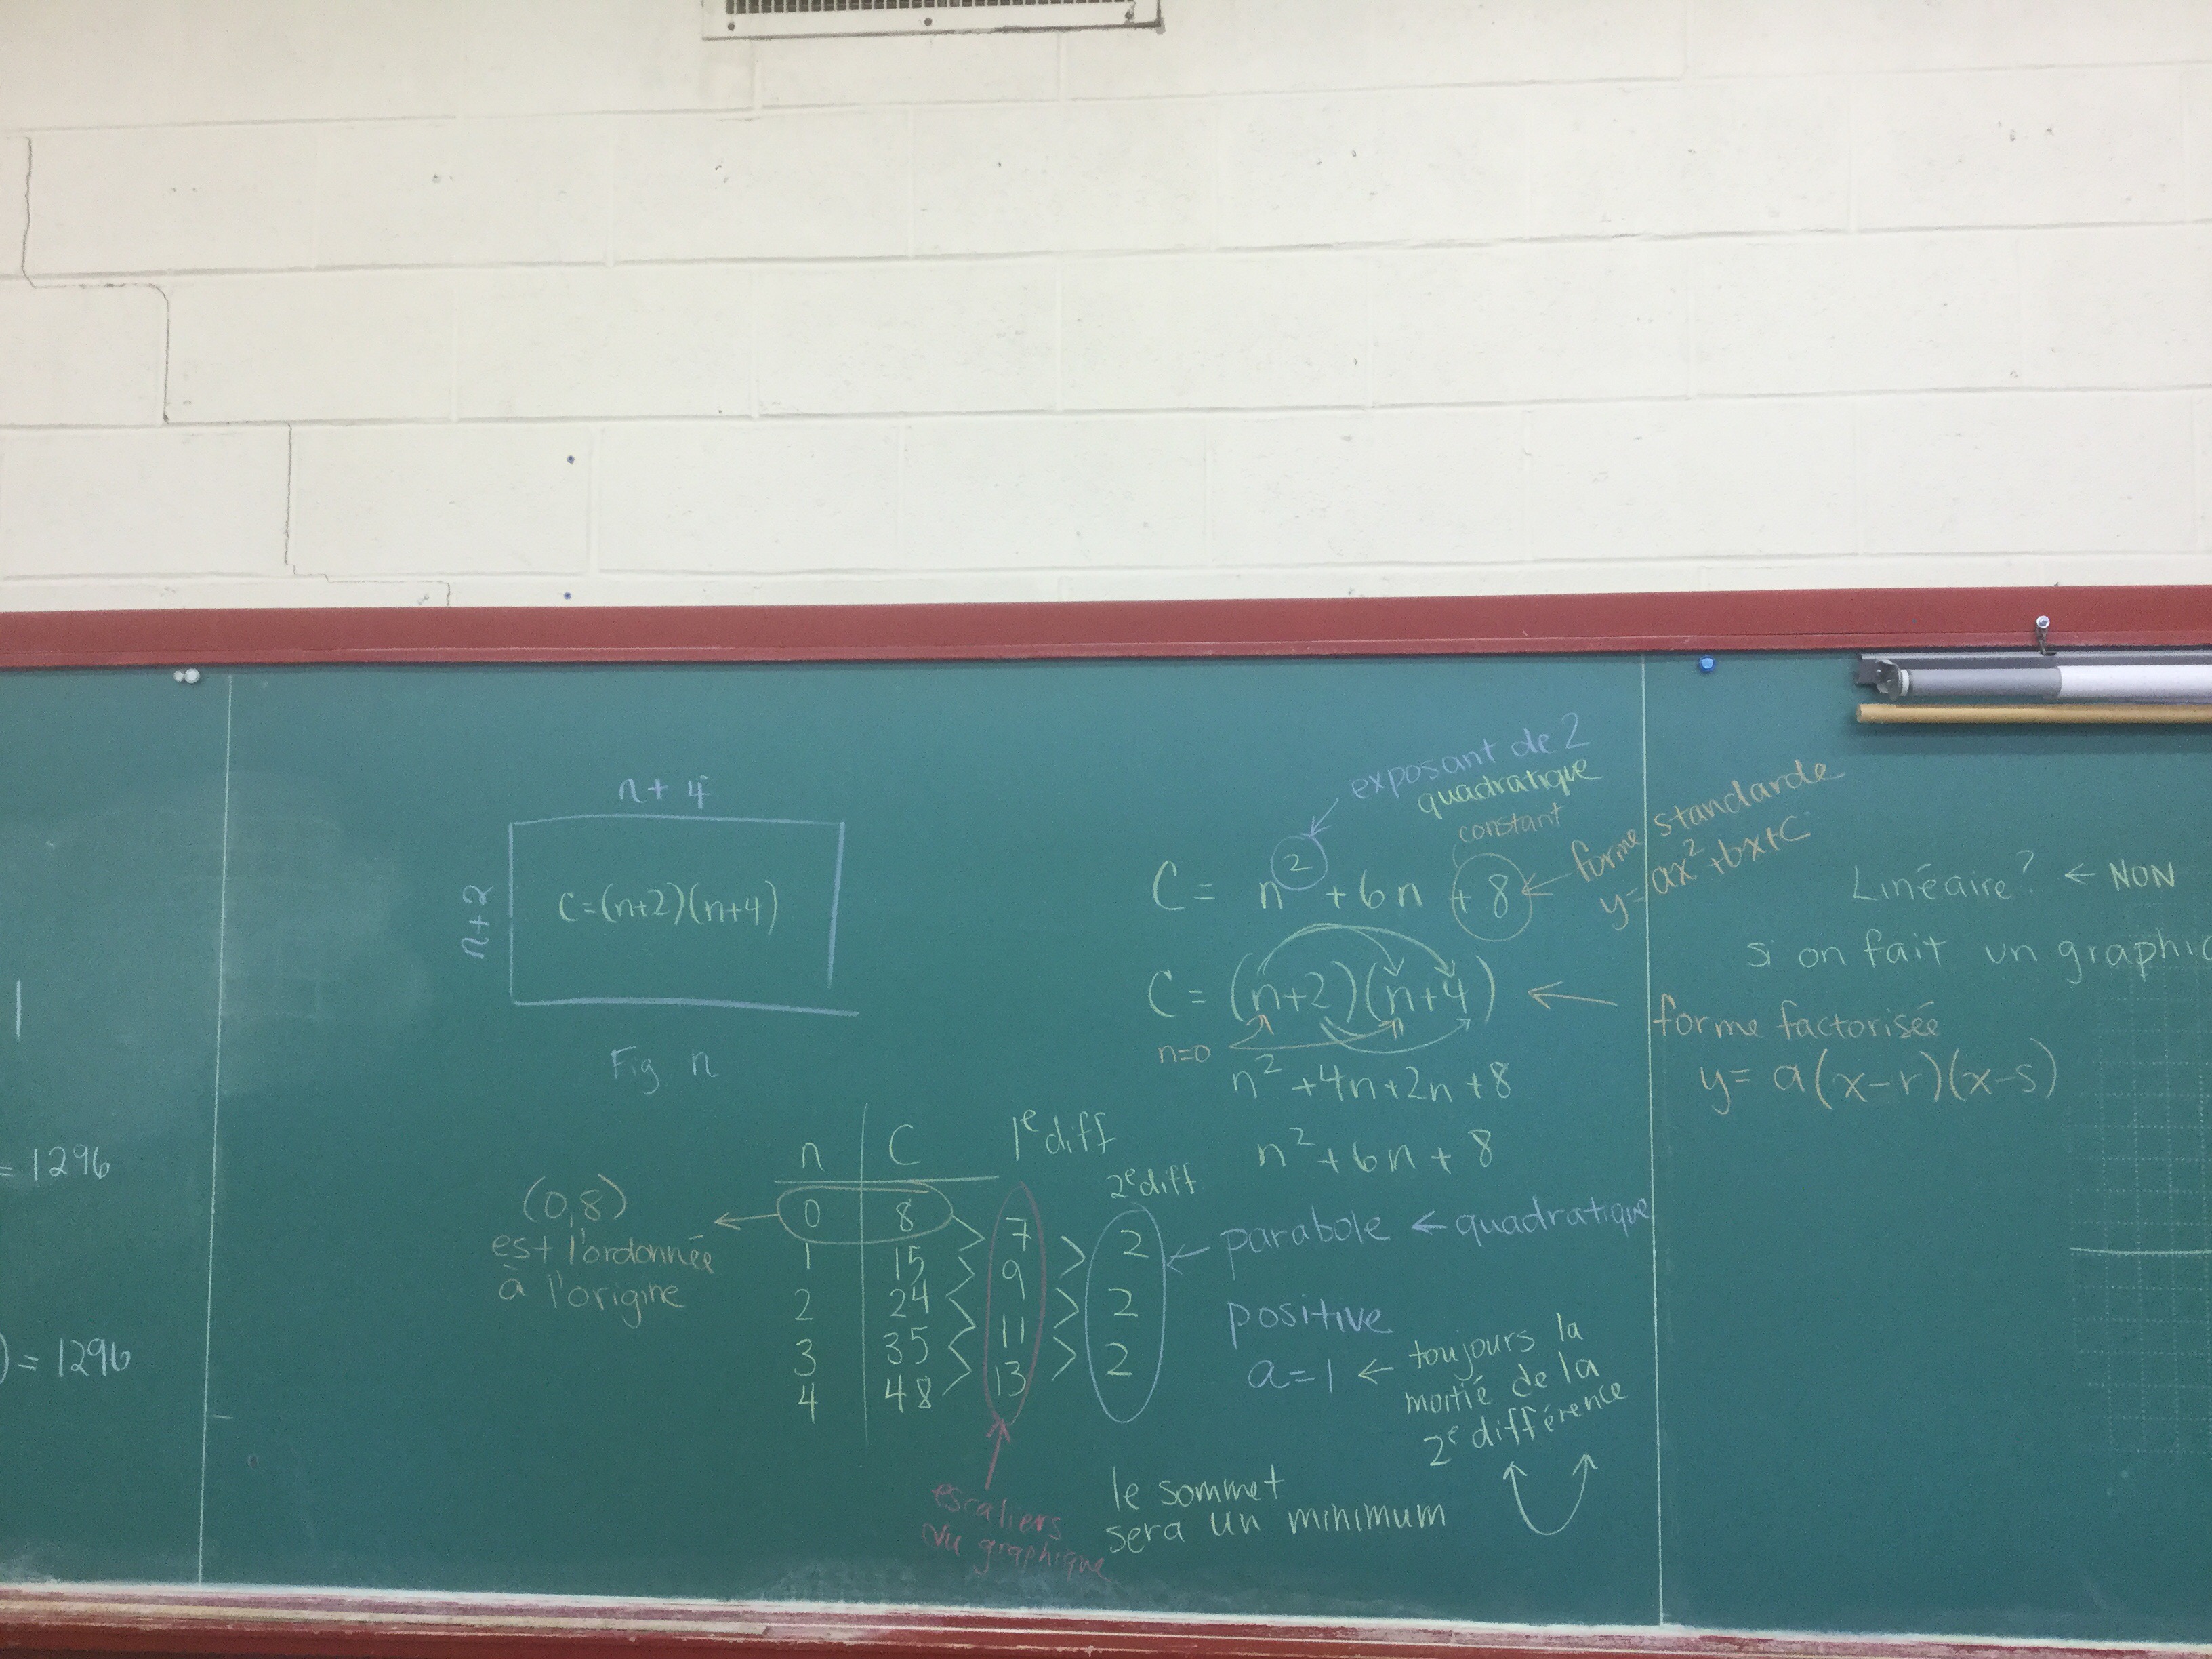 = 1296
) = 1296
n + 4
n+2
C=(n+2)(n+4)
Fig n
exposant de 2
quadratique
constant
C = n² + 6n + 8
forme standarde
y = ax² + bx + C
C = (n+2)(n+4)
n=0
n² + 4n + 2n + 8
n² + 6n + 8
forme factorisée
y = a(x-r)(x-s)
Linéaire? ← NON
si on fait un graphi
n C 1e diff 2e diff
0 8
7 2
1 15
9
2 24 2
11
3 35 2
13
4 48
(0,8)
est l'ordonnée
à l'origine
escaliers
du graphique
← parabole ← quadratique
positive
a=1 ← toujours la
moitié de la
2e différence
le sommet
sera un minimum